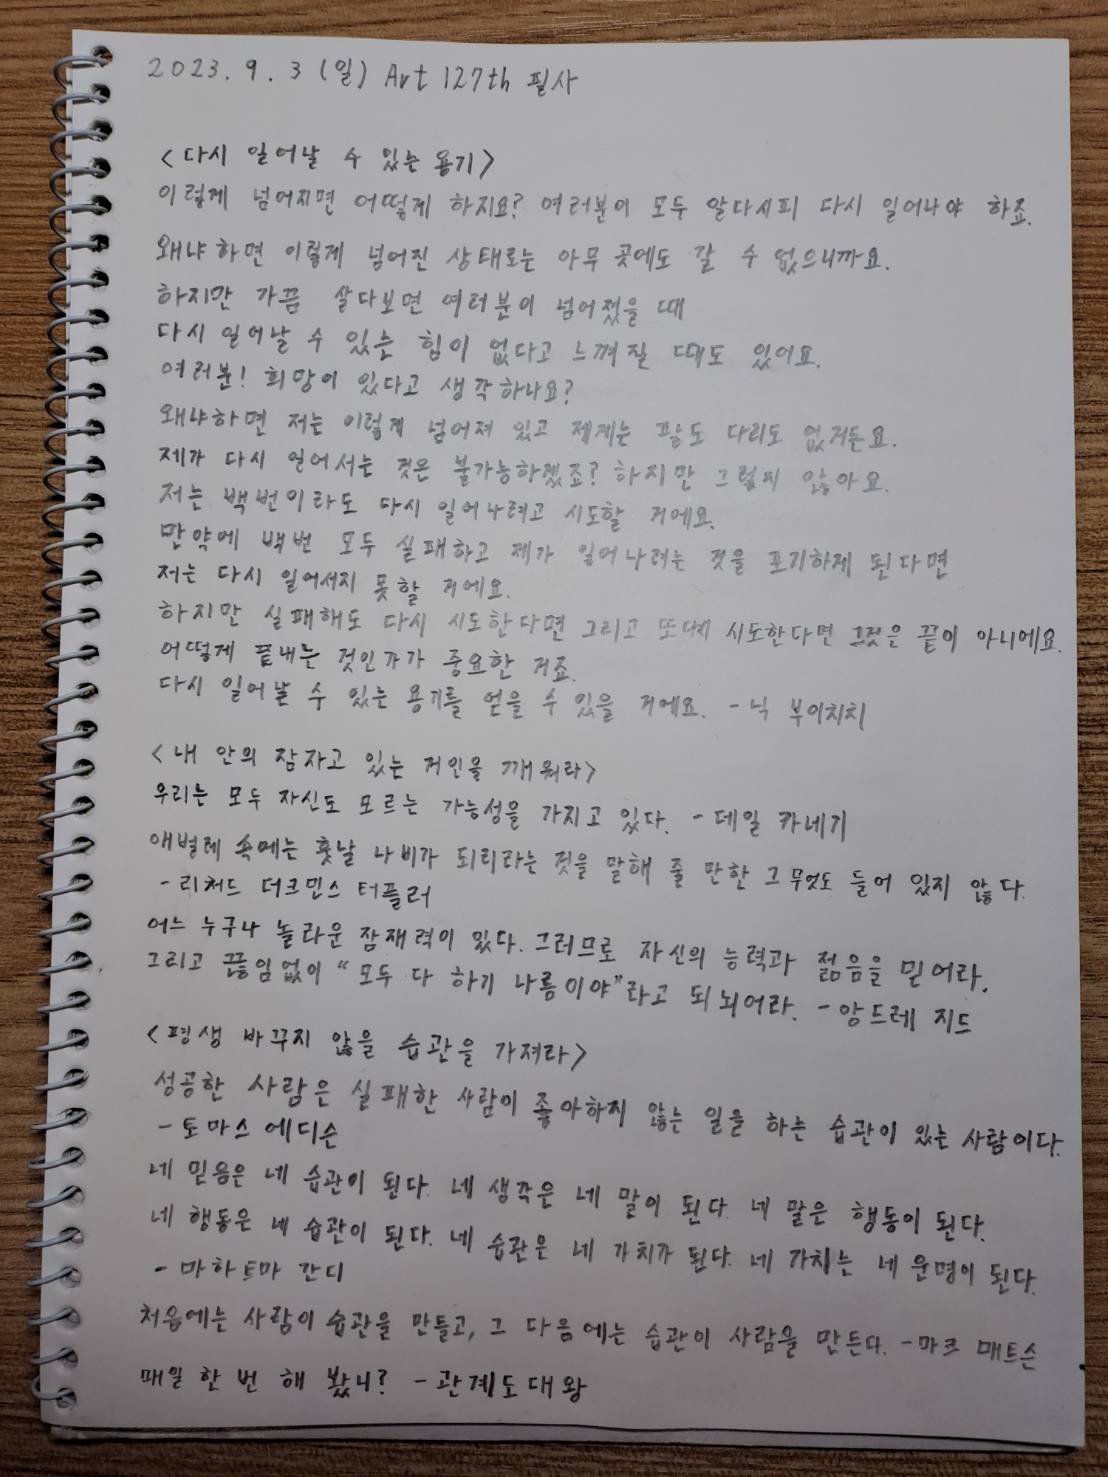 2023. 9. 3 (일) Art 127th 필사
<다시 일어날 수 있는 용기>
이렇게 넘어지면 어떻게 하지요? 여러분이 모두 알다시피 다시 일어나야 하죠.
왜냐하면 이렇게 넘어진 상태로는 아무 곳에도 갈 수 없으니까요.
하지만 가끔 살다보면 여러분이 넘어졌을 때
다시 일어날 수 있는 힘이 없다고 느껴질 때도 있어요.
여러분! 희망이 있다고 생각하나요?
왜냐하면 저는 이렇게 넘어져 있고 제게는 팔도 다리도 없거든요.
제가 다시 일어서는 것은 불가능하겠죠? 하지만 그렇지 않아요.
저는 백번이라도 다시 일어나려고 시도할 거에요.
만약에 백번 모두 실패하고 제가 일어나려는 것을 포기하게 된다면
저는 다시 일어서지 못할 거에요.
하지만 실패해도 다시 시도한다면 그리고 또다시 시도한다면 그것은 끝이 아니에요.
어떻게 끝내는 것인가가 중요한 거죠.
다시 일어날 수 있는 용기를 얻을 수 있을 거에요. - 닉 부이치치
<내 안의 잠자고 있는 거인을 깨워라>
우리는 모두 자신도 모르는 가능성을 가지고 있다. - 데일 카네기
애벌레 속에는 훗날 나비가 되리라는 것을 말해 줄 만한 그 무엇도 들어 있지 않다.
- 리처드 더크민스 터플러
어느 누구나 놀라운 잠재력이 있다. 그러므로 자신의 능력과 젊음을 믿어라.
그리고 끊임없이 "모두 다 하기 나름이야"라고 되뇌어라. - 앙드레 지드
<평생 바꾸지 않을 습관을 가져라>
성공한 사람은 실패한 사람이 좋아하지 않는 일을 하는 습관이 있는 사람이다.
- 토마스 에디슨
네 믿음은 네 습관이 된다. 네 생각은 네 말이 된다. 네 말은 행동이 된다.
네 행동은 네 습관이 된다. 네 습관은 네 가치가 된다. 네 가치는 네 운명이 된다.
- 마하트마 간디
처음에는 사람이 습관을 만들고, 그 다음에는 습관이 사람을 만든다. - 마크 매트슨
매일 한 번 해 봤니? - 관계도대왕